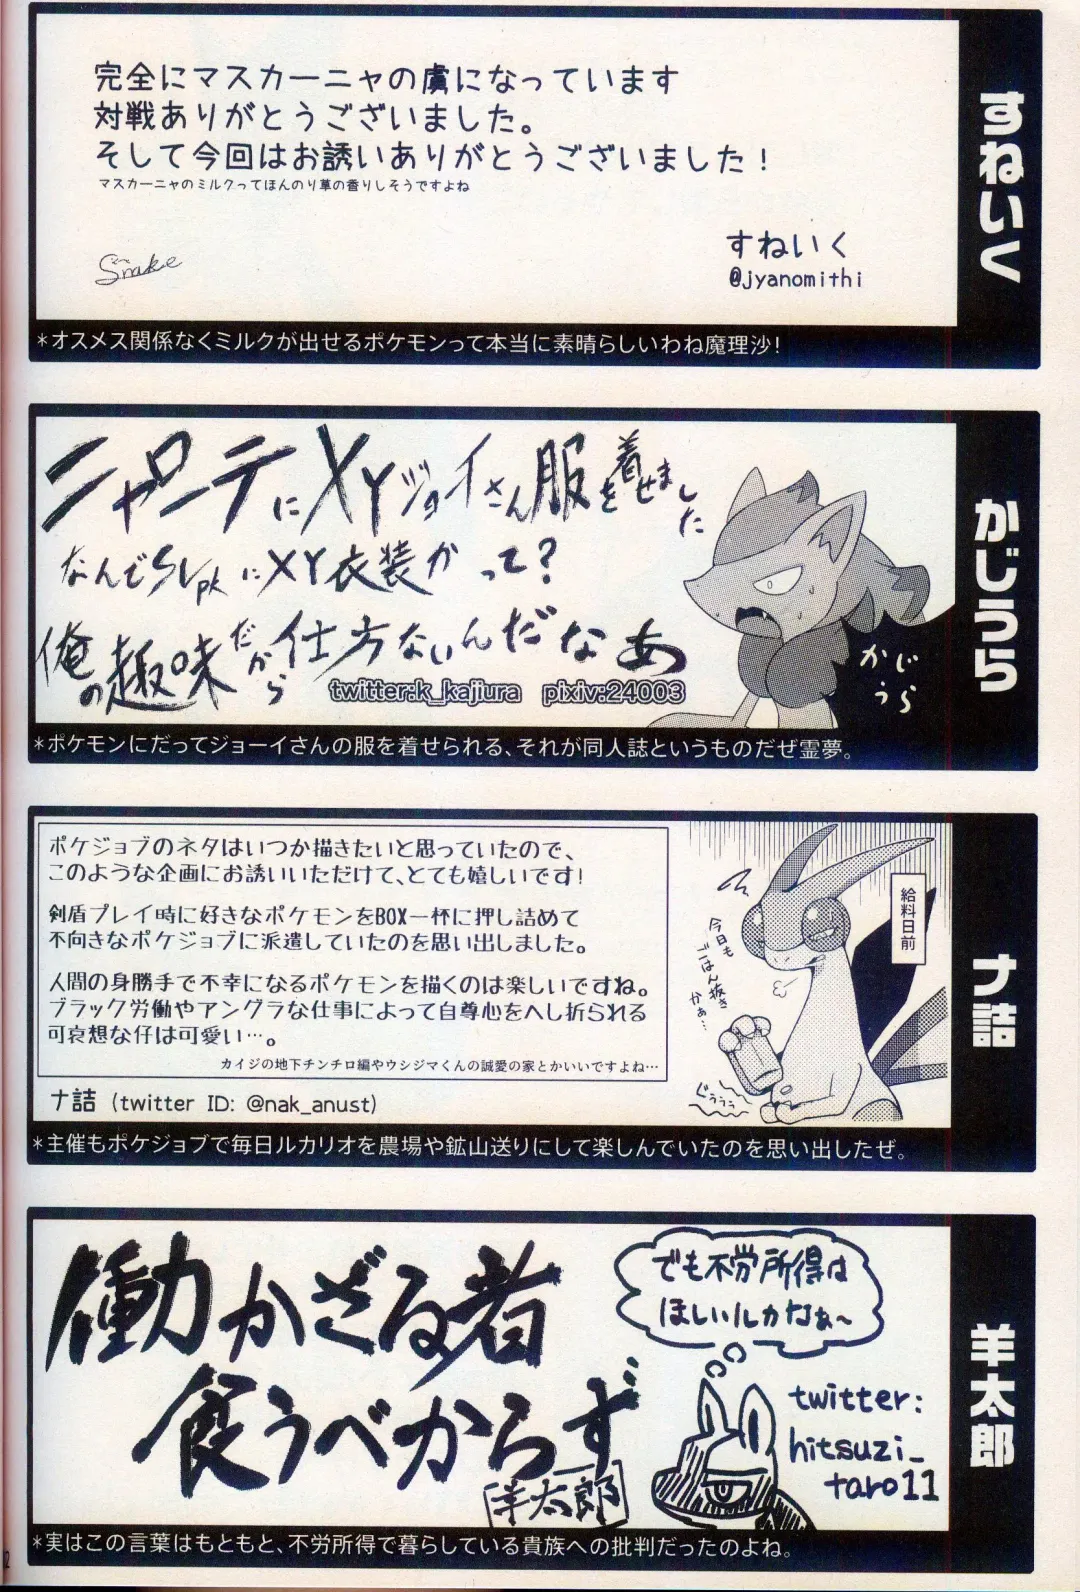 完全にマスカーニャの虜になっています
対戦ありがとうございました。
そして今回はお誘いありがとうございました！
マスカーニャのミルクってほんのり草の香りしそうですよね
すねいく
@jyanomithi
Snake
すねいく
*オスメス関係なくミルクが出せるポケモンって本当に素晴らしいわね魔理沙!
ニャローテにXYジョイさん服を着せました
なんでSVpkにXY衣装かって？
俺の趣味だから仕方ないんだなあ
twitter:k_kajiura pixiv:24003
かじうら
かじうら
*ポケモンにだってジョーイさんの服を着せられる、それが同人誌というものだぜ霊夢。
ポケジョブのネタはいつか描きたいと思っていたので、
このような企画にお誘いいただけて、とても嬉しいです！
剣盾プレイ時に好きなポケモンをBOX一杯に押し詰めて
不向きなポケジョブに派遣していたのを思い出しました。
人間の身勝手で不幸になるポケモンを描くのは楽しいですね。
ブラック労働やアングラな仕事によって自尊心をへし折られる
可哀想な仔は可愛い…。
カイジの地下チンチロ編やウシジマくんの誠愛の家とかいいですよね…
ナ詰 (twitter ID: @nak_anust)
給料日前
今日も
ごはん抜き
かぁ…
ぐぅぅぅ
ナ詰
*主催もポケジョブで毎日ルカリオを農場や鉱山送りにして楽しんでいたのを思い出したぜ。
働かざる者
食うべからず
羊太郎
でも不労所得は
ほしいルカなぁ～
twitter:
hitsuzi_
taro11
羊太郎
*実はこの言葉はもともと、不労所得で暮らしている貴族への批判だったのよね。